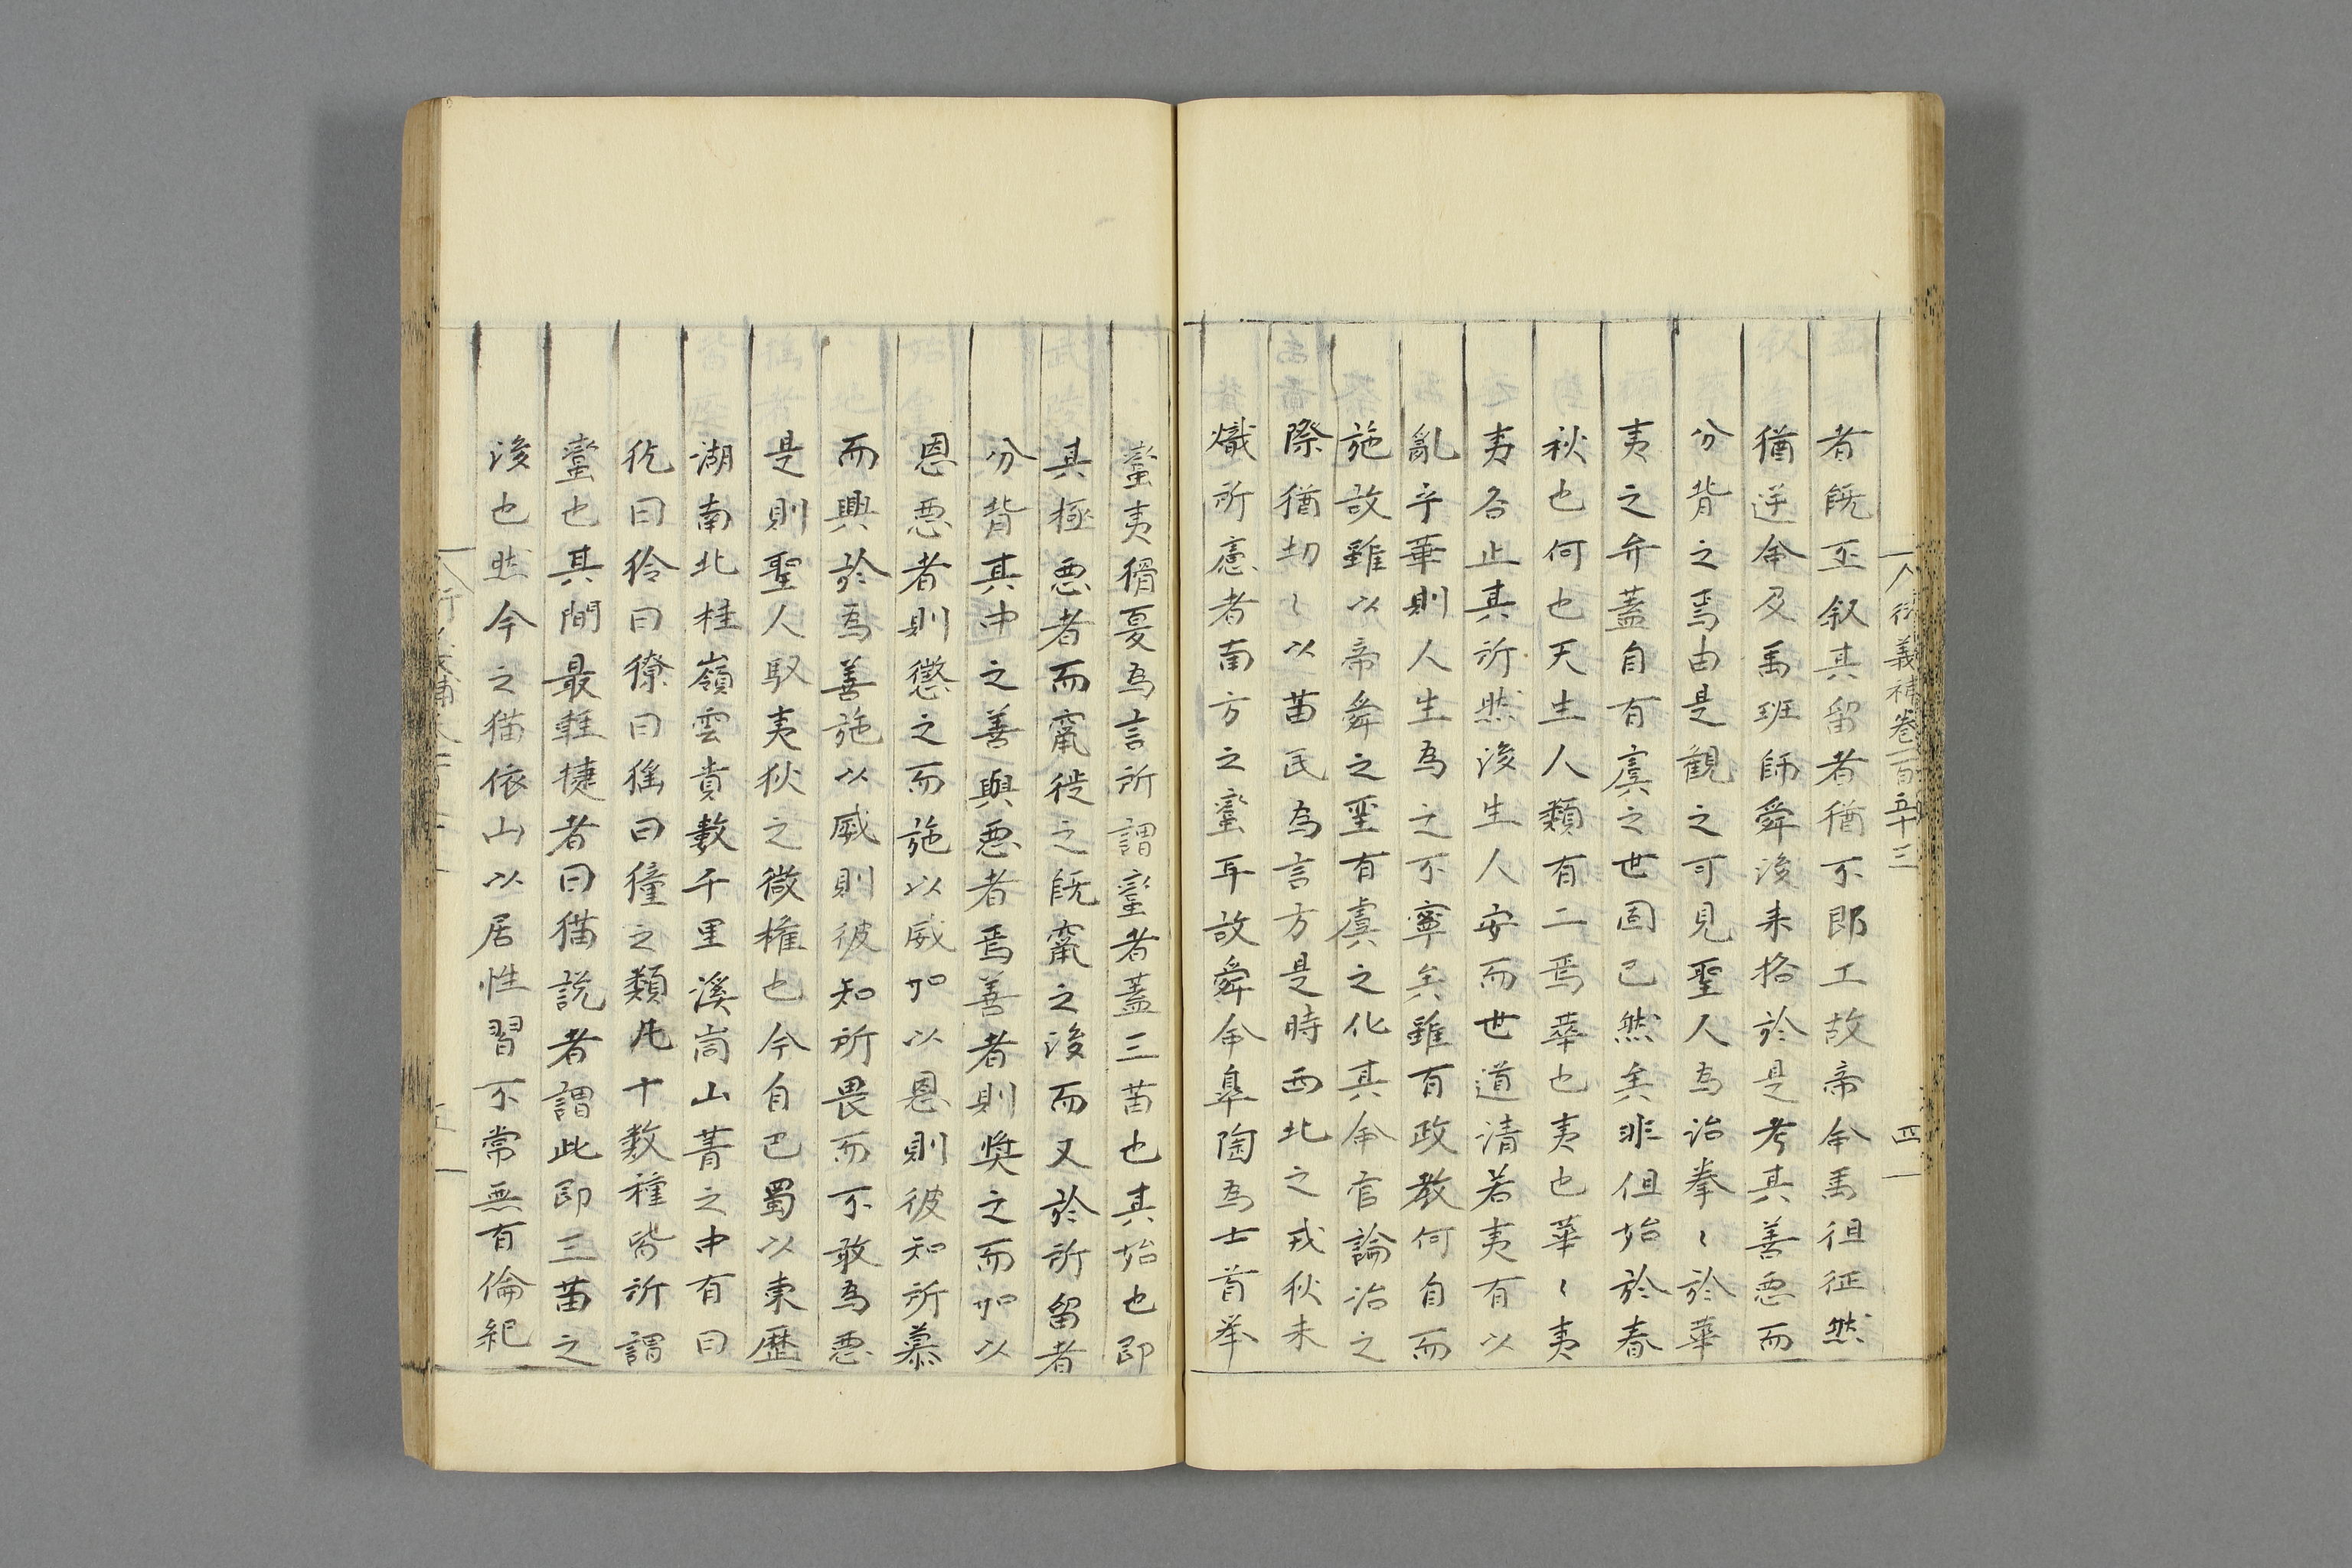 衍義補卷一百五十三
四
者既丕叙其留者猶不即工故帝命禹徂征然
猶逆命及禹班師舜後来格於是考其善悪而
分背之焉由是観之可見聖人為治拳〻於華
夷之弁蓋自有虞之世固已然矣非但始於春
秋也何也天生人類有二焉華也夷也華〻夷
夷各止其所然後生人安而世道清若夷有以
亂乎華則人生為之不寧矣雖有政教何自而
施故雖以帝舜之聖有虞之化其命官論治之
際猶切〻以苗民為言方是時西北之戎狄未
熾所慮者南方之蠻耳故舜命臯陶為士首挙
蠻夷猾夏為言所謂蠻者蓋三苗也其始也即
其極悪者而竄徙之既竄之後而又於所留者
分背其中之善與悪者焉善者則奨之而加以
恩悪者則懲之而施以威加以恩則彼知所慕
而興於為善施以威則彼知所畏而不敢為悪
是則聖人馭夷狄之微権也今自巴蜀以東歴
湖南北桂嶺雲貴數千里溪峝山菁之中有曰
犵曰狑曰獠曰猺曰獞之類凡十数種皆所謂
蠻也其間最軽捷者曰猫説者謂此即三苗之
後也然今之猫依山以居性習不常無有倫紀